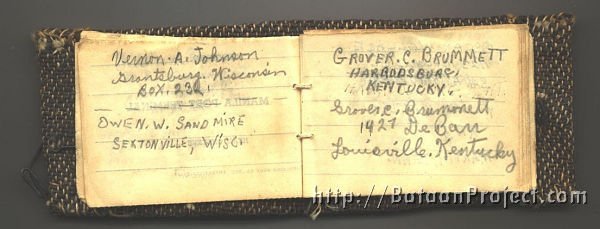 Vernon. A. Johnson
Grantsburg. Wisconsin
BOX. 232.
OWEN. W. SANDMIRE
SEXTONVILLE, WISC.
GROVER. C. BRUMMETT
HARRODSBURG,
KENTUCKY.
Grover. C. Brummett
1427 De Barr
Louisville. Kentucky
http://BataanProject.com